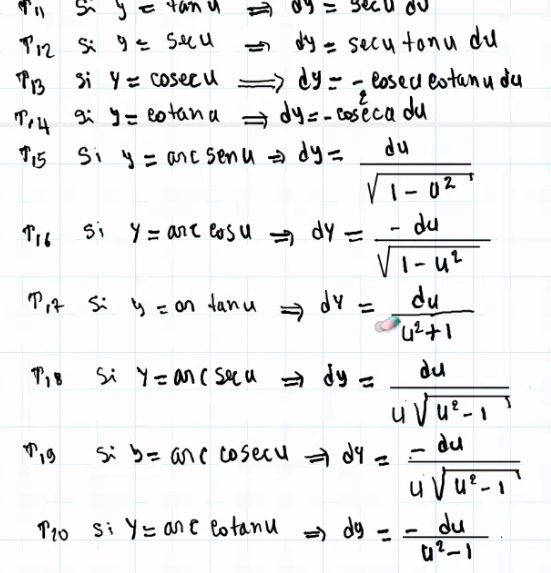 P11 Si y = tan u ⇒ dy = sec u du
P12 Si y = sec u ⇒ dy = sec u tan u du
P13 si y = cosec u ⟹ dy = - cosec u cotan u du
P14 si y = cotan u ⇒ dy = - cosec² u du
P15 Si y = arc sen u ⇒ dy = du / √(1 - u²)
P16 Si y = arc cos u ⇒ dy = - du / √(1 - u²)
P17 Si y = arc tan u ⇒ dy = du / u² + 1
P18 Si y = arc sec u ⇒ dy = du / u √(u² - 1)
P19 Si y = arc cosec u ⇒ dy = - du / u √(u² - 1)
P20 si y = arc cotan u ⇒ dy = - du / u² - 1